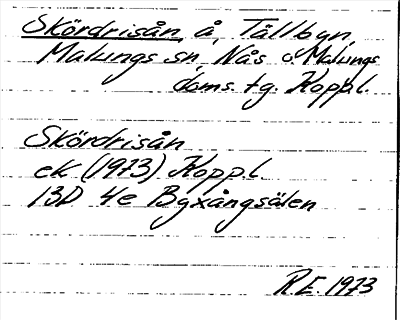 Skördrisån, å, Tällbyn,
Malungs sn, Nås o Malungs
doms. tg. Koppl.
Skördrisån
ek (1973) Koppl.
13D 4e Byxångsälen
RE 1973